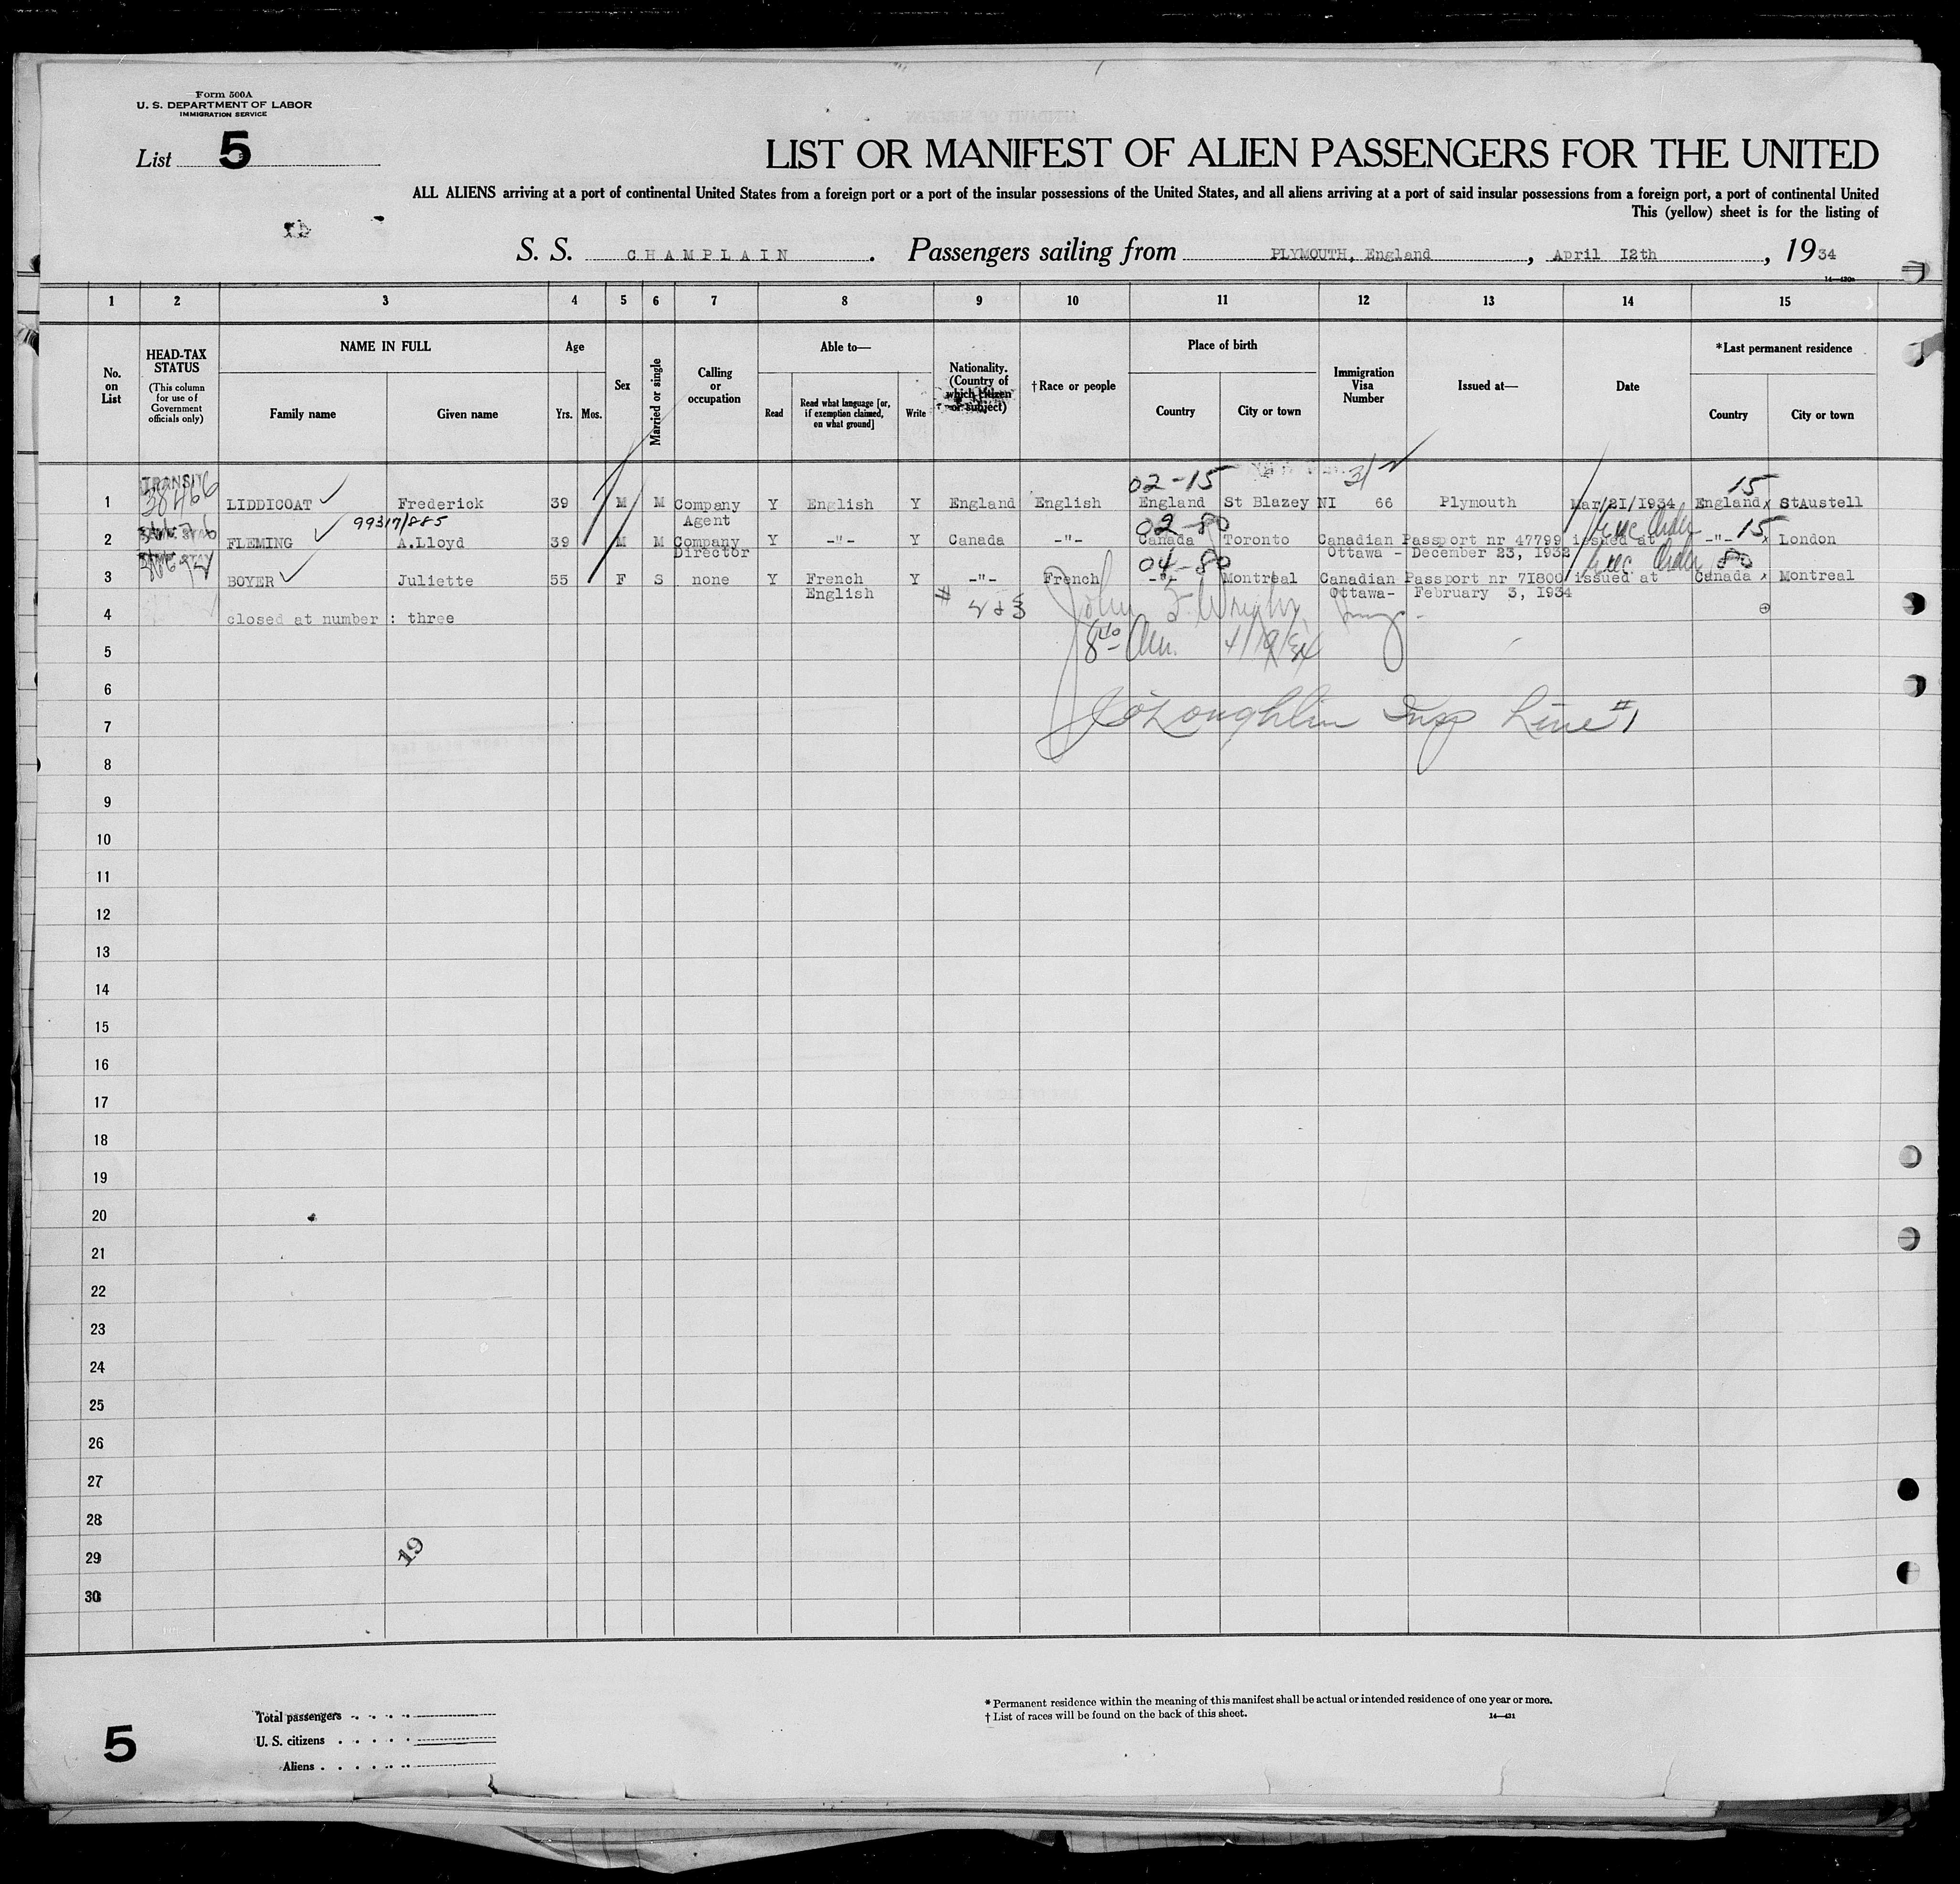 Form 500A
U. S. DEPARTMENT OF LABOR
IMMIGRATION SERVICE
List 5
LIST OR MANIFEST OF ALIEN PASSENGERS FOR THE UNITED
ALL ALIENS arriving at a port of continental United States from a foreign port or a port of the insular possessions of the United States, and all aliens arriving at a port of said insular possessions from a foreign port, a port of continental United
This (yellow) sheet is for the listing of
S. S. CHAMPLAIN. Passengers sailing from PLYMOUTH, England, April 12th, 1934
14—430a
1 2 3 4 5 6 7 8 9 10 11 12 13 14 15
No. on List
HEAD-TAX STATUS
(This column for use of Government officials only)
NAME IN FULL
Family name Given name
Age
Yrs. Mos.
Sex
Married or single
Calling or occupation
Able to—
Read
Read what language [or, if exemption claimed, on what ground]
Write
Nationality. (Country of which citizen or subject)
†Race or people
Place of birth
Country City or town
Immigration Visa Number
Issued at—
Date
*Last permanent residence
Country City or town
TRANSIT 02-15 15
1 38466 LIDDICOAT Frederick 39 M M Company Agent Y English Y England English England St Blazey NI 66 Plymouth Mar/21/1934 England x StAustell
99317/885 02-80 Exec Order 15
2 FLEMING A.Lloyd 39 M M Company Director Y -"- Y Canada -"- Canada Toronto Canadian Passport nr 47799 issued at -"- x London
Ottawa - December 23, 1932
04-80 Exec Order 80
3 BOYER Juliette 55 F S none Y French Y -"- French -"- Montreal Canadian Passport nr 71800 issued at Canada x Montreal
English Ottawa- February 3, 1934
4 closed at number : three
# 2 & 3 John F. Wright Insp.
5
6
7 O'Loughlin Insp Line #1
8
9
10
11
12
13
14
15
16
17
18
19
20
21
22
23
24
25
26
27
28
29
30
19
5
Total passengers
U. S. citizens
Aliens
* Permanent residence within the meaning of this manifest shall be actual or intended residence of one year or more.
† List of races will be found on the back of this sheet.
14—431